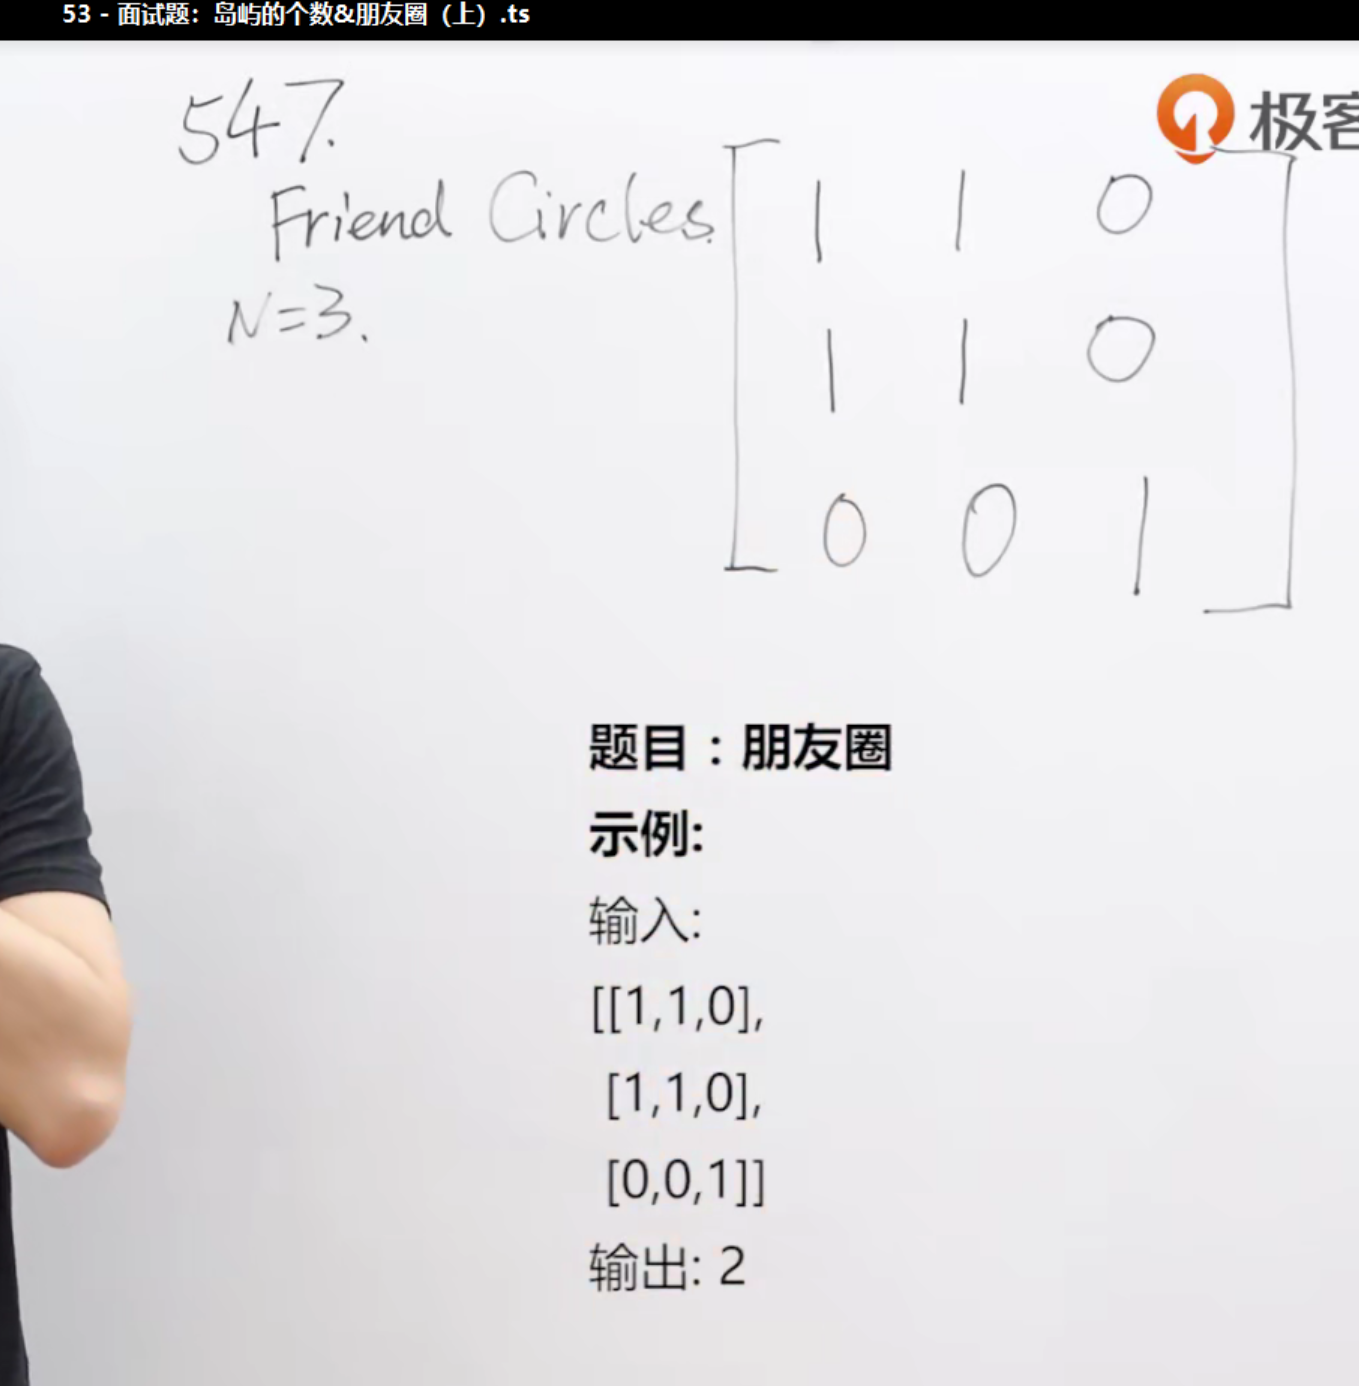 53 - 面试题：岛屿的个数&朋友圈（上）.ts
极客
547.
Friend Circles.
N=3.
1 1 0
1 1 0
0 0 1
题目：朋友圈
示例:
输入:
[[1,1,0],
[1,1,0],
[0,0,1]]
输出: 2